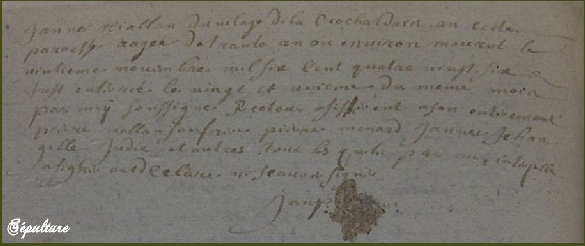 Janne Riallan du vilage de la Crochardais en cette
paroisse aagée de trante an ou environ mourut le
vintieme novembre mil six cent quatre vingt six &
fust enterree le vingt et unieme du meme mois
par moy soussigné Recteur assisterent a son entirement
pierre Riallan son frere pierre menard Janne Jehan
gille Judic et autres tous les quels par moy interpellé
a signer ont declaré ne scavoir signer
Sépulture